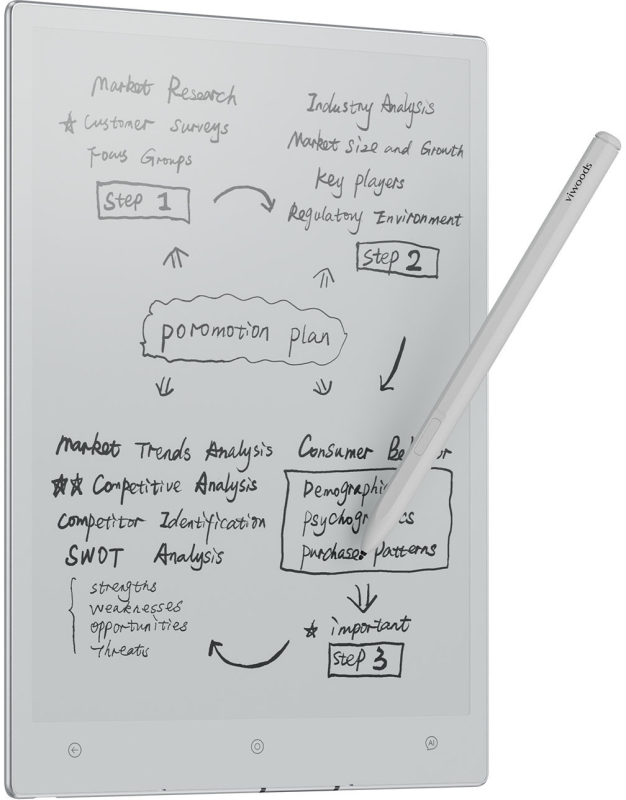 Market Research
☆ Customer surveys
Focus Groups
Step 1
Industry Analysis
Market Size and Growth
Key players
Regulatory Environment
Step 2
poromotion plan
Market Trends Analysis
★★ Competitive Analysis
Competitor Identification
SWOT Analysis
strengths
weaknesses
opportunities
Threats
Consumer
Purchase patterns
☆ important
Step 3
viwoods
AI